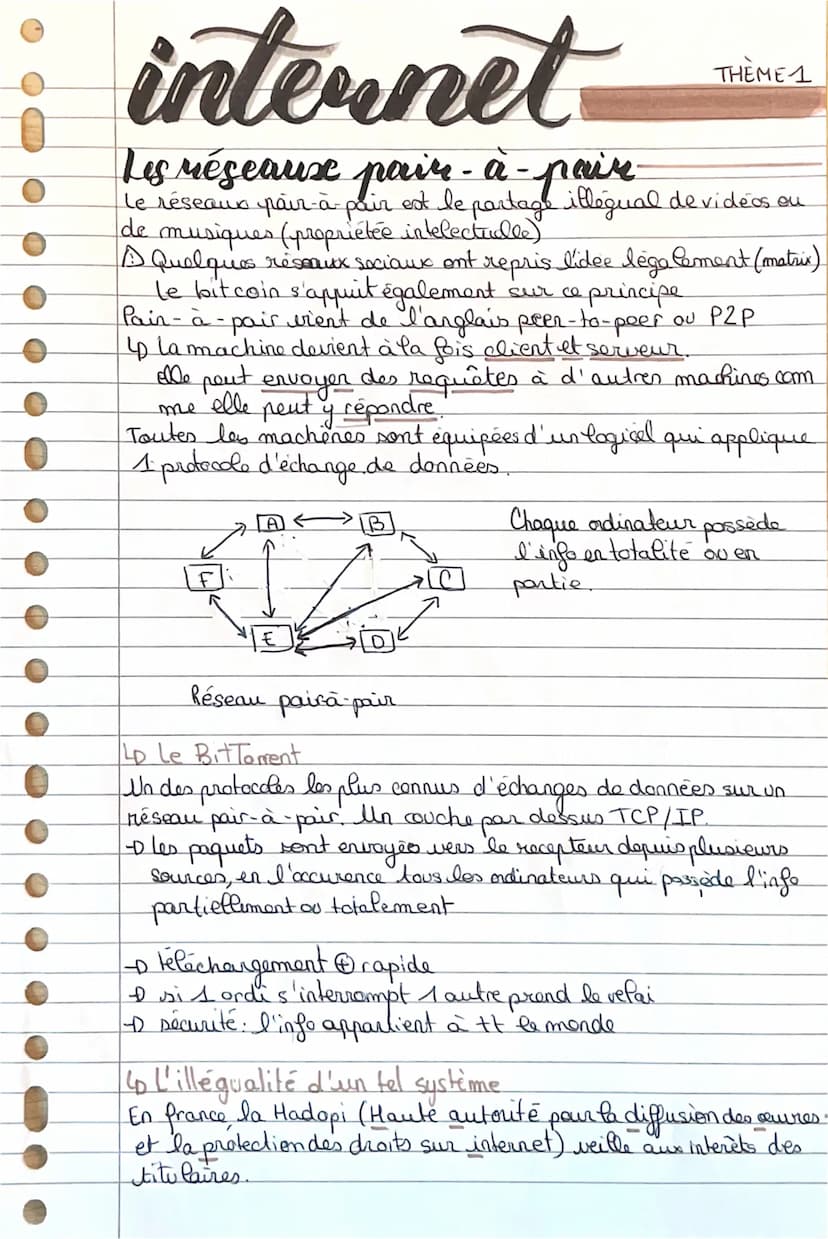 internet
THÈME 1
Les réseaux pair-à-pair
Le réseaux pair-à-pair est le partage illégual de vidéos ou
de musiques (propriétée intelectuelle)
⚠ Quelques réseaux sociaux ont repris l'idee légalement (matrix)
Le bitcoin s'appuit également sur ce principe
Pair-à-pair vient de l'anglais peer-to-peer ou P2P
↳ La machine devient à la fois client et serveur.
elle peut envoyer des requêtes à d'autres machines com
me elle peut y répondre
Toutes les machines sont équipées d'un logiciel qui applique
1 protocole d'échange de données.
A B
F C
E D
Chaque ordinateur possède
l'info en totalité ou en
partie.
Réseau pair-à-pair
↳ Le BitTorrent
Un des protocoles les plus connus d'échanges de données sur un
réseau pair-à-pair. Un couche par dessus TCP/IP.
→ Les paquets sont envoyés vers le recepteur depuis plusieurs
sources, en l'accurence tous les ordinateurs qui possède l'info
partiellement ou totalement
→ téléchargement ⊕ rapide
→ si 1 ordi s'interrompt 1 autre prend le relai
→ sécurité: l'info appartient à tt le monde
↳ L'illégualité d'un tel système
En france la Hadopi (Haute autorité pour la diffusion des œuvres
et la protection des droits sur internet) veille aux interêts des
titulaires.